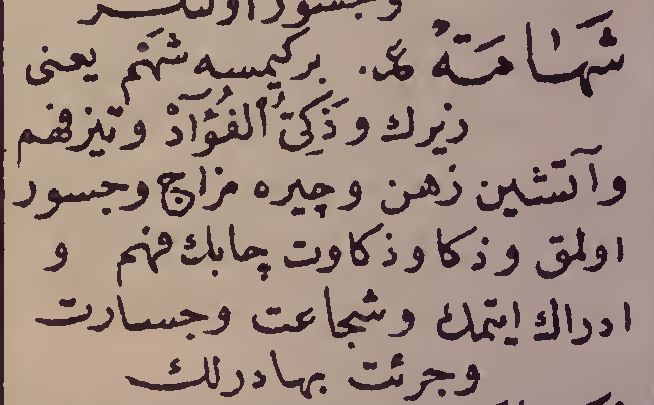 وجسور اولنلر
شَهَامَةٌ ع. بر كيمسه شَهْم يعنى
زيرك و ذَكِىُّ الفُؤَاد و تيز فهم
و آتشين ذهن و چيره مزاج و جسور
اولمق و ذكا و ذكاوت چابك فهم و
ادراك ايتمك و شجاعت و جسارت
و جرئت بهادرلك